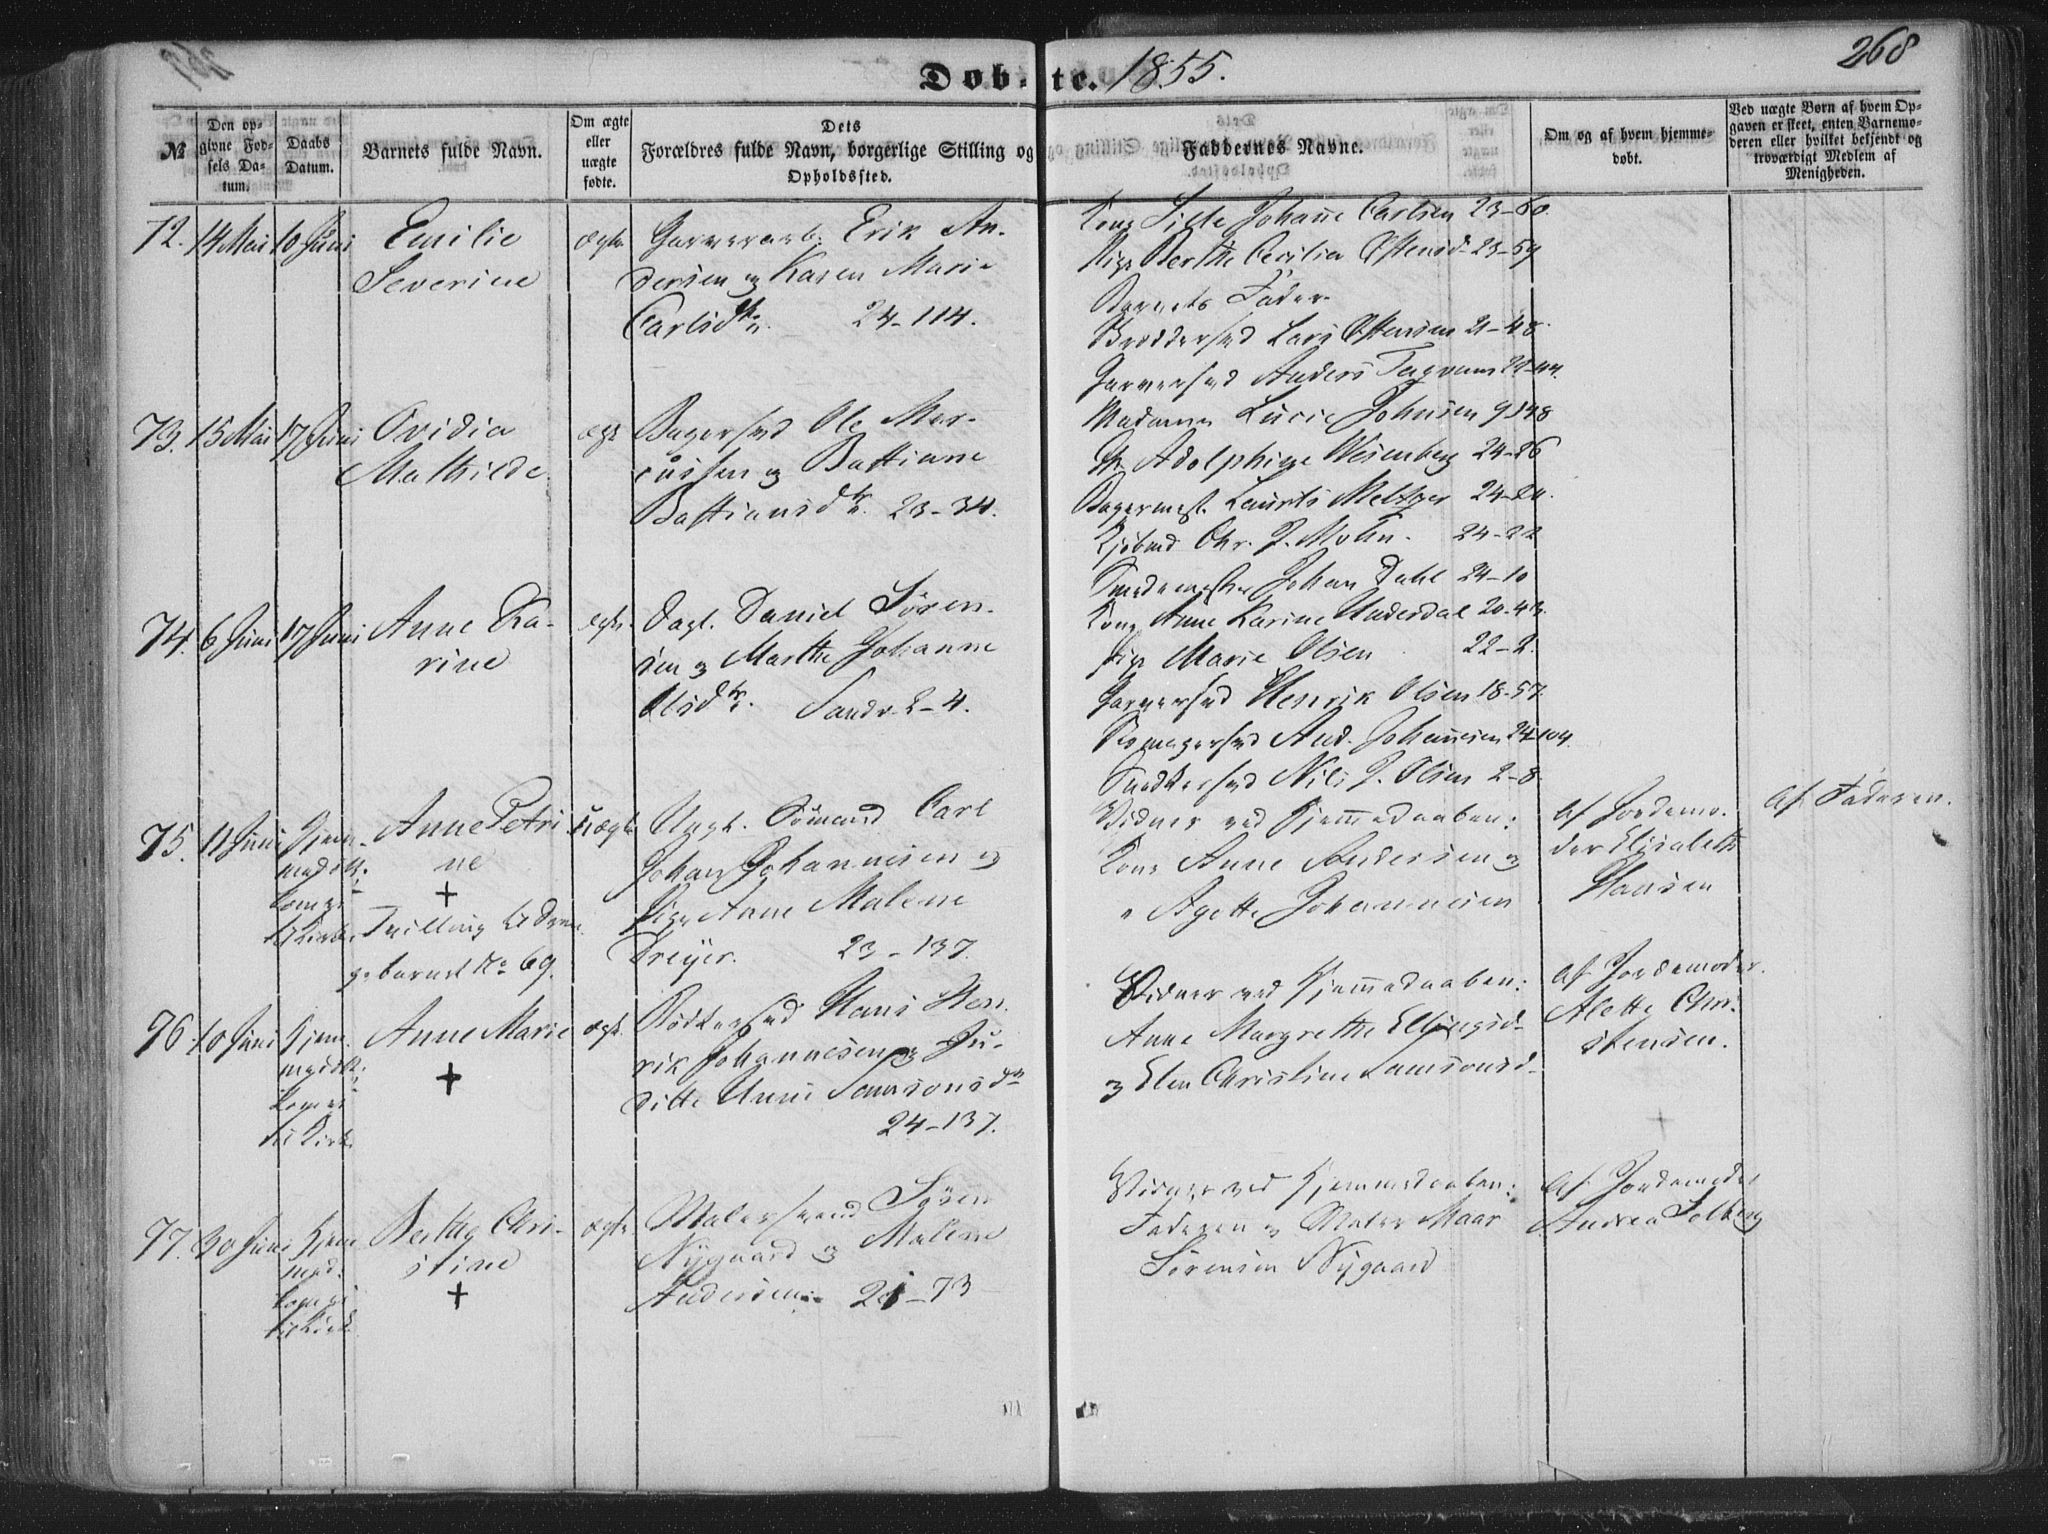 268
Døb-te. 1855.
№
Den opgivne Fødsels Datum.
Daabs Datum.
Barnets fulde Navn.
Om ægte eller uægte fødte.
Dets Forældres fulde Navn, borgerlige Stilling og Opholdssted.
Faddernes Navne.
Om og af hvem hjemmedøbt.
Ved uægte Børn af hvem Opgaven er skeet, enten Barnemoderen eller hvilket bekjendt og troværdigt Medlem af Menigheden.
72. 14 Mai 10 Juni Emilie
Severine
ægte
Garverarb. Erik An-
dersen og Karen Marie
Carlsdtr. 24-114.
Kone Sille Johanne Carlsen 23-60.
Pige Berthe Cecilia Ostensd. 23-59
Barnets Fader
Lars Ostensen 21-48.
Garversvd Anders
73. 15 Mai 17 Juni Ovidia
Mathilde
ægte
Bagersvd Ole Mar-
cussen og Bastiane
Bastiansdtr. 23-34.
Madame Lucie Johnsen 9-148
Adolphine Wesenberg 24-26
Bagermest. Laurits Meltzer
Kjøbmd Chr. P. Mohn. 24-22
Smedemester Johan Dahl 24-10
74. 6 Juni 17 Juni Anne Ka-
rine
ægte.
Dagl. Daniel Søren-
sen og Marthe Johanne
Olsdtr. Sandv. 2-4.
Kone Anne Karine Underdal 20-43.
Pige Marie Olsen 22-2.
Garversvd Henrik Olsen 18-57.
Skomagersvd And. Johannesen 24-104.
Snedkersvd Nils J. Olsen 2-8.
75. 11 Juni Hjem-
medøbt.
kom ei
til Kirke
Anne Petri-
ne
+
Tvilling til Dren-
gebarnet No 69.
uægte
Ungk. Sømand Carl
Johan Johannesen og
Pige Anne Malene
Dreyer. 23-137.
Vidner ved Hjemmedaaben:
Kone Anne Andersen og
" Agethe Johannesen
Af Jordemo-
der Elisabeth
Hansen
Af Faderen.
76. 10 Juni Hjem-
medøbt.
kom ei
til Kirke
Anne Marie
+
ægte.
Bødkersvd Hans Hen-
rik Johannesen og Ju-
ditte Unni Samsonsdtr
24-137.
Vidner ved Hjemmedaaben:
Anne Margrethe Ellingsd.
og Elen Christine Samsonsd.
Af Jordemoder
Alette Chri-
stensen.
77. 30 Juni Hjem-
med.
kom ei
til Kirke
Berthe Chri-
stine
+
ægte
Malersvend Søren
Nygaard og Malene
Andersen. 21-73
Vidner ved Hjemmedaaben:
Faderen og Maler
Sørensen Nygaard
Af Jordemoder
Andrea Solberg